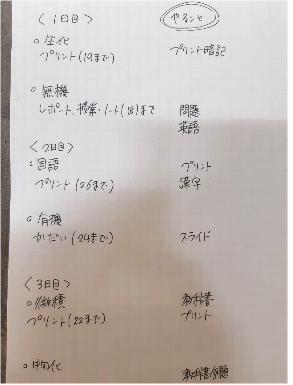 〈1日目〉 やること
○ 生化
プリント(19まで) プリント暗記
○ 無機
レポート、授業ノート(18)まで 問題
英語
〈2日目〉
○ 国語 プリント
プリント(26まで) 漢字
○ 有機
かだい(24まで) スライド
〈3日目〉
○微積 教科書
プリント(22まで) プリント
○ 物化 教科書、問題